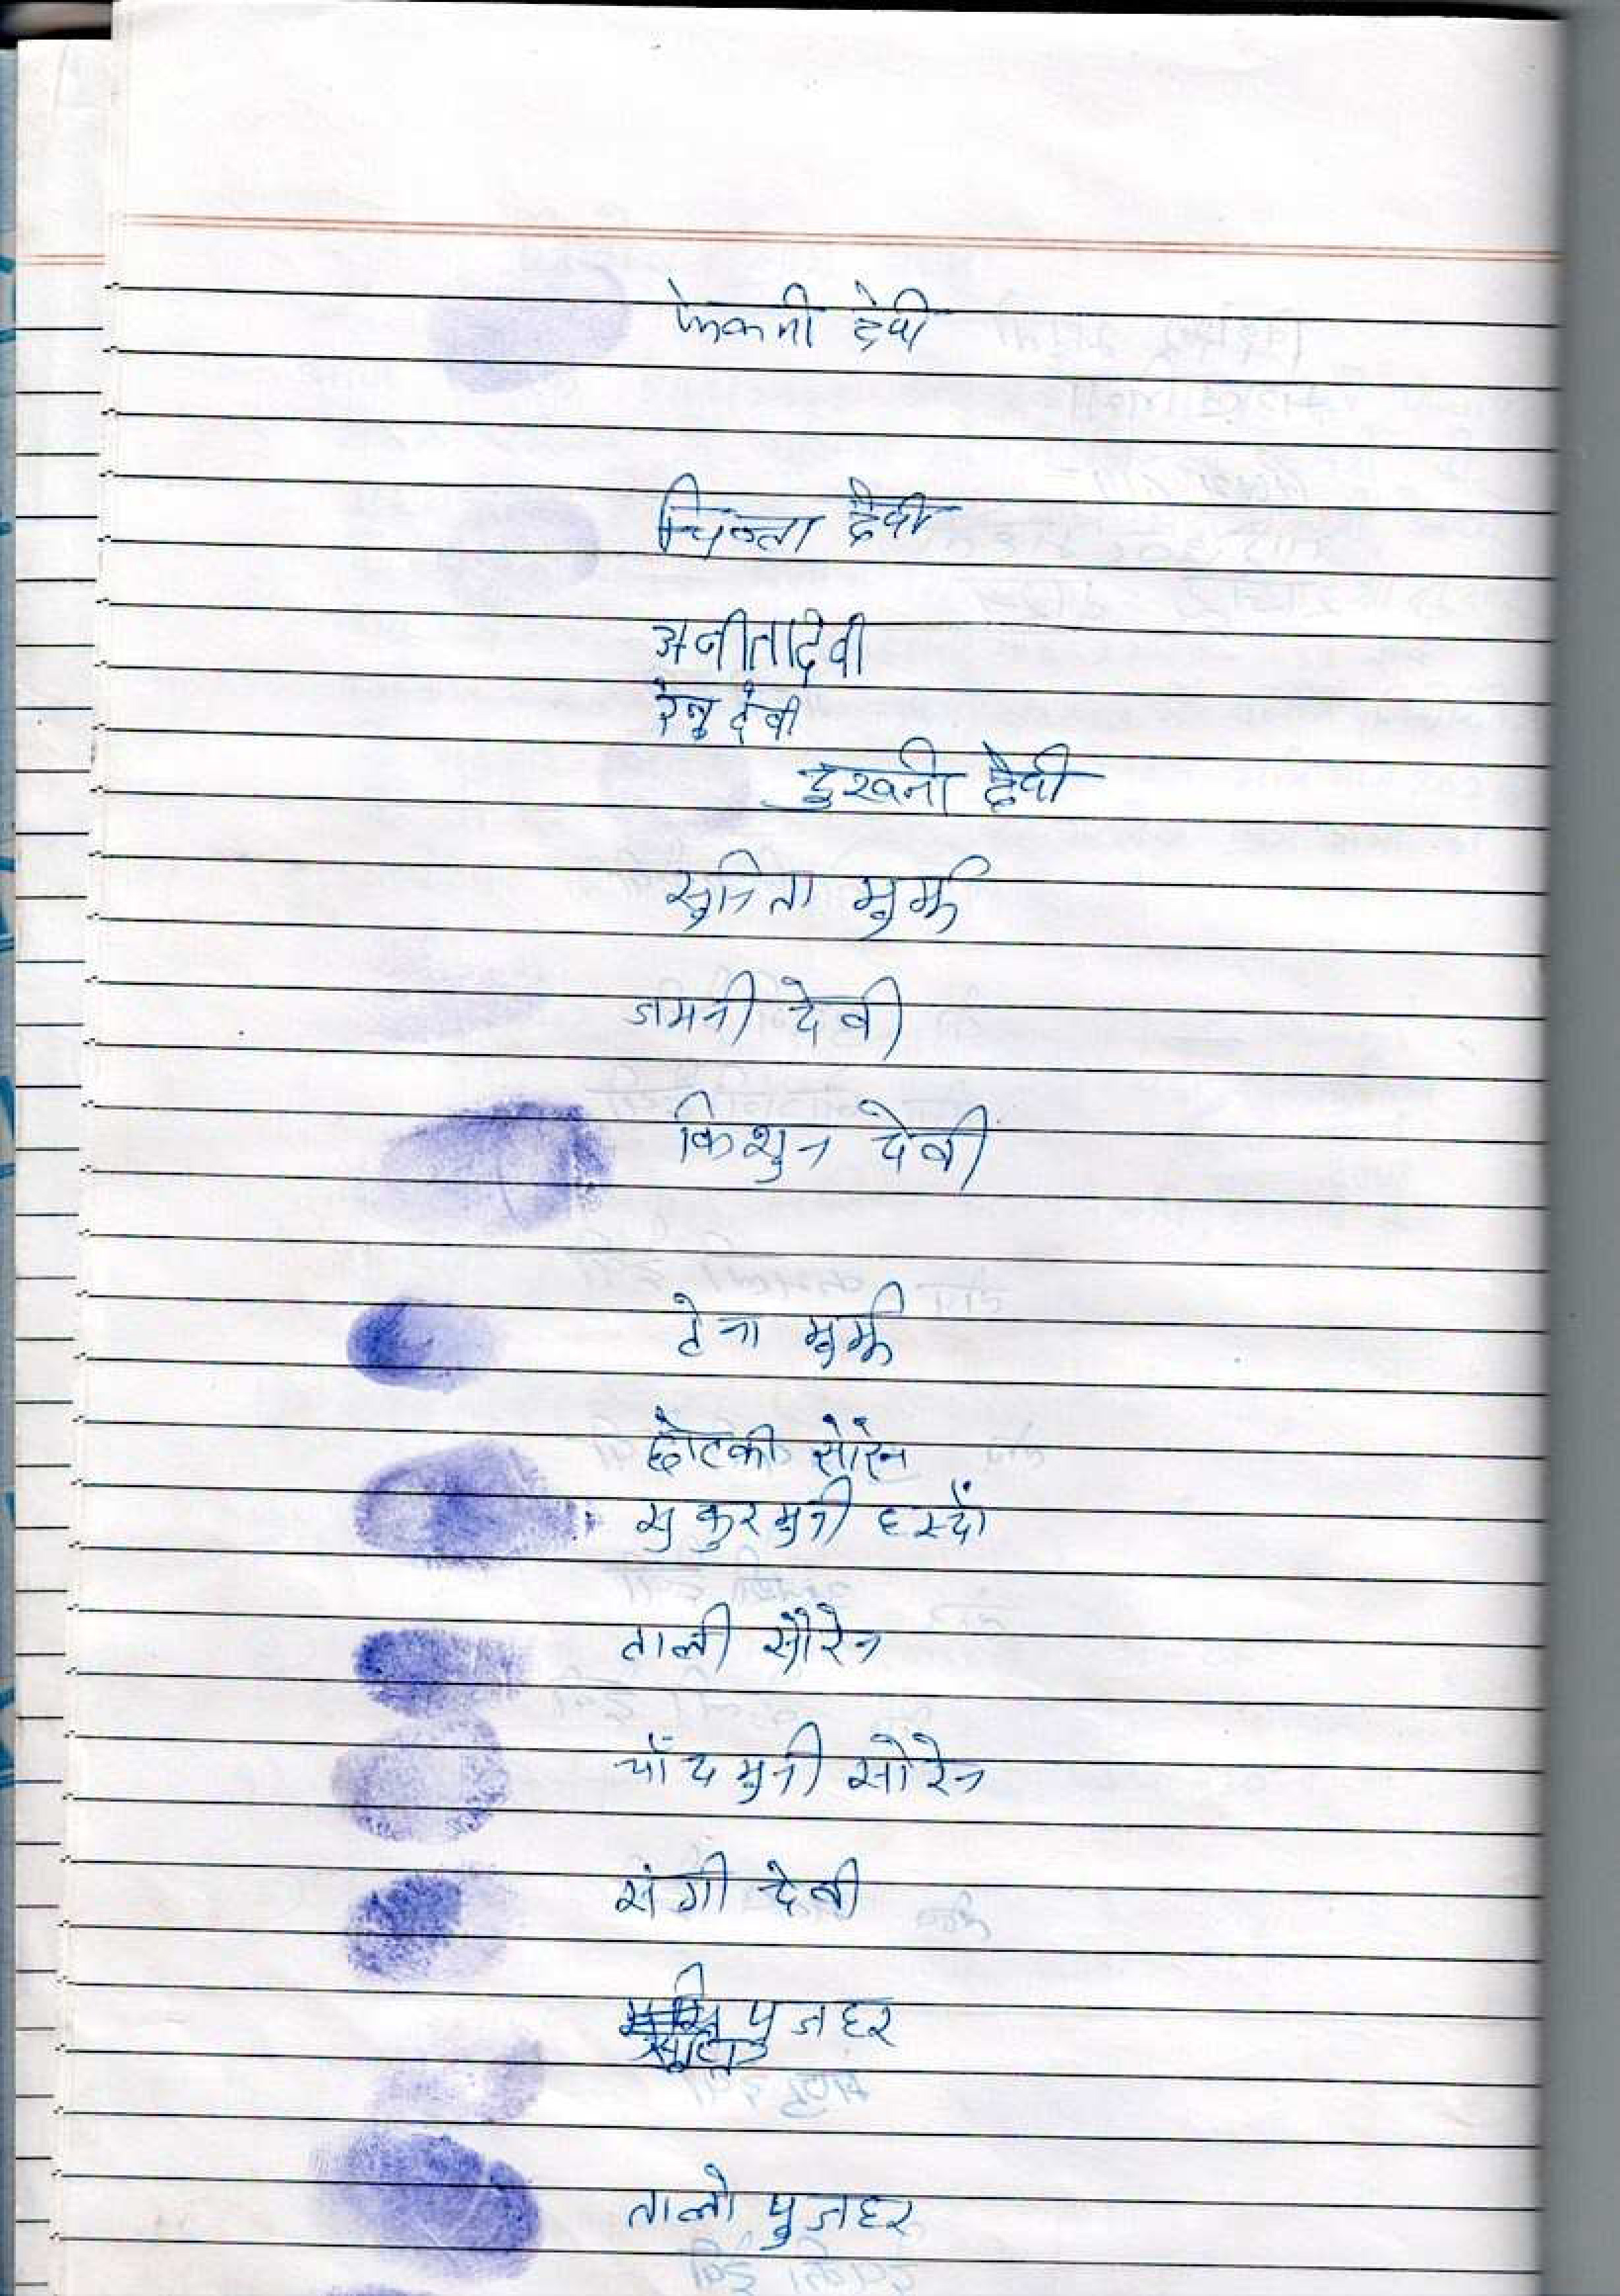 देवी
चिन्ता देवी
अनीता देवी
रेनु देवी
दुखनी देवी
सुनिता मुर्मू
जमनी देवी
किशुन देवी
टेना मुर्मू
छोटकी सोरेन
सुकुरमुनी हस्दाँ
ताली सोरेन
चाँदमुनी सोरेन
संगी देवी
पुजहर
तालो पुजहर